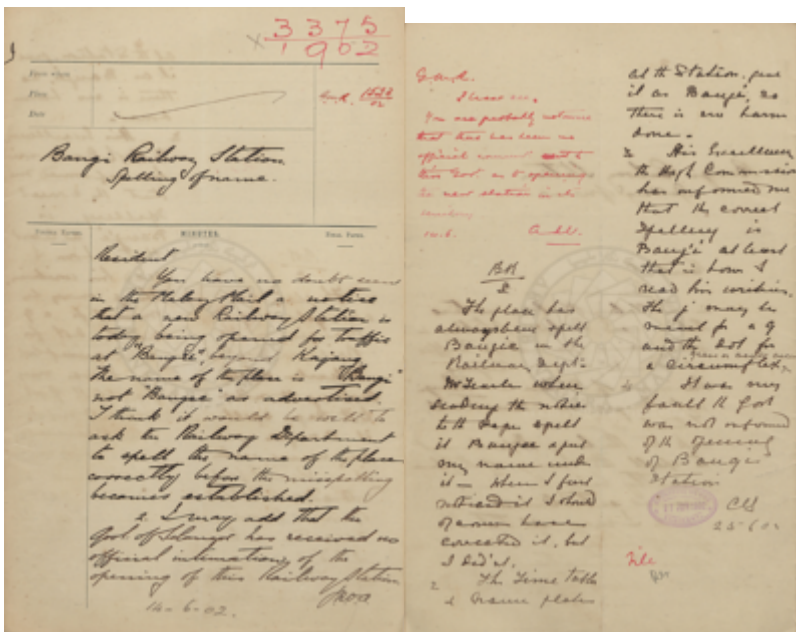 3375
1902
G.R. 1528
02
Bangi Railway Station
Spelling of name.
MINUTES.
Resident
You have no doubt seen
in the Malay Mail a notice
that a new Railway Station is
today being opened for traffic
at "Bangee", beyond Kajang.
The name of the place is "Bangi"
not "Bangee" as advertised.
I think it would be well to
ask the Railway Department
to spell the name of the place
correctly before the misspelling
becomes established.
2. I may add that the
Govt. of Selangor has received no
official intimation of the
opening of this Railway Station
14-6-02.
You are probably
that there has been no
official
this Govt. as to opening
the new station in its
14.6.
The place has
always been spelt
Bangie in the
Railway Dept.
when
sending the notice
to the paper spelt
it Bangee & put
my name under
it — when I first
noticed it I should
of course have
corrected it, but
I did'nt.
2 The Time table
& name plates
at the Station, give
it as Bangi, so
there is no harm
done.
3 His Excellency
the High Commissioner
has informed me
that the correct
spelling is
Bangi at least
that is how I
read his writing.
The j may be
meant for a g
and the dot for
a circumflex.
4 It was my
fault the Govt
was not informed
of the opening
of Bangi
Station
25-6-02
File